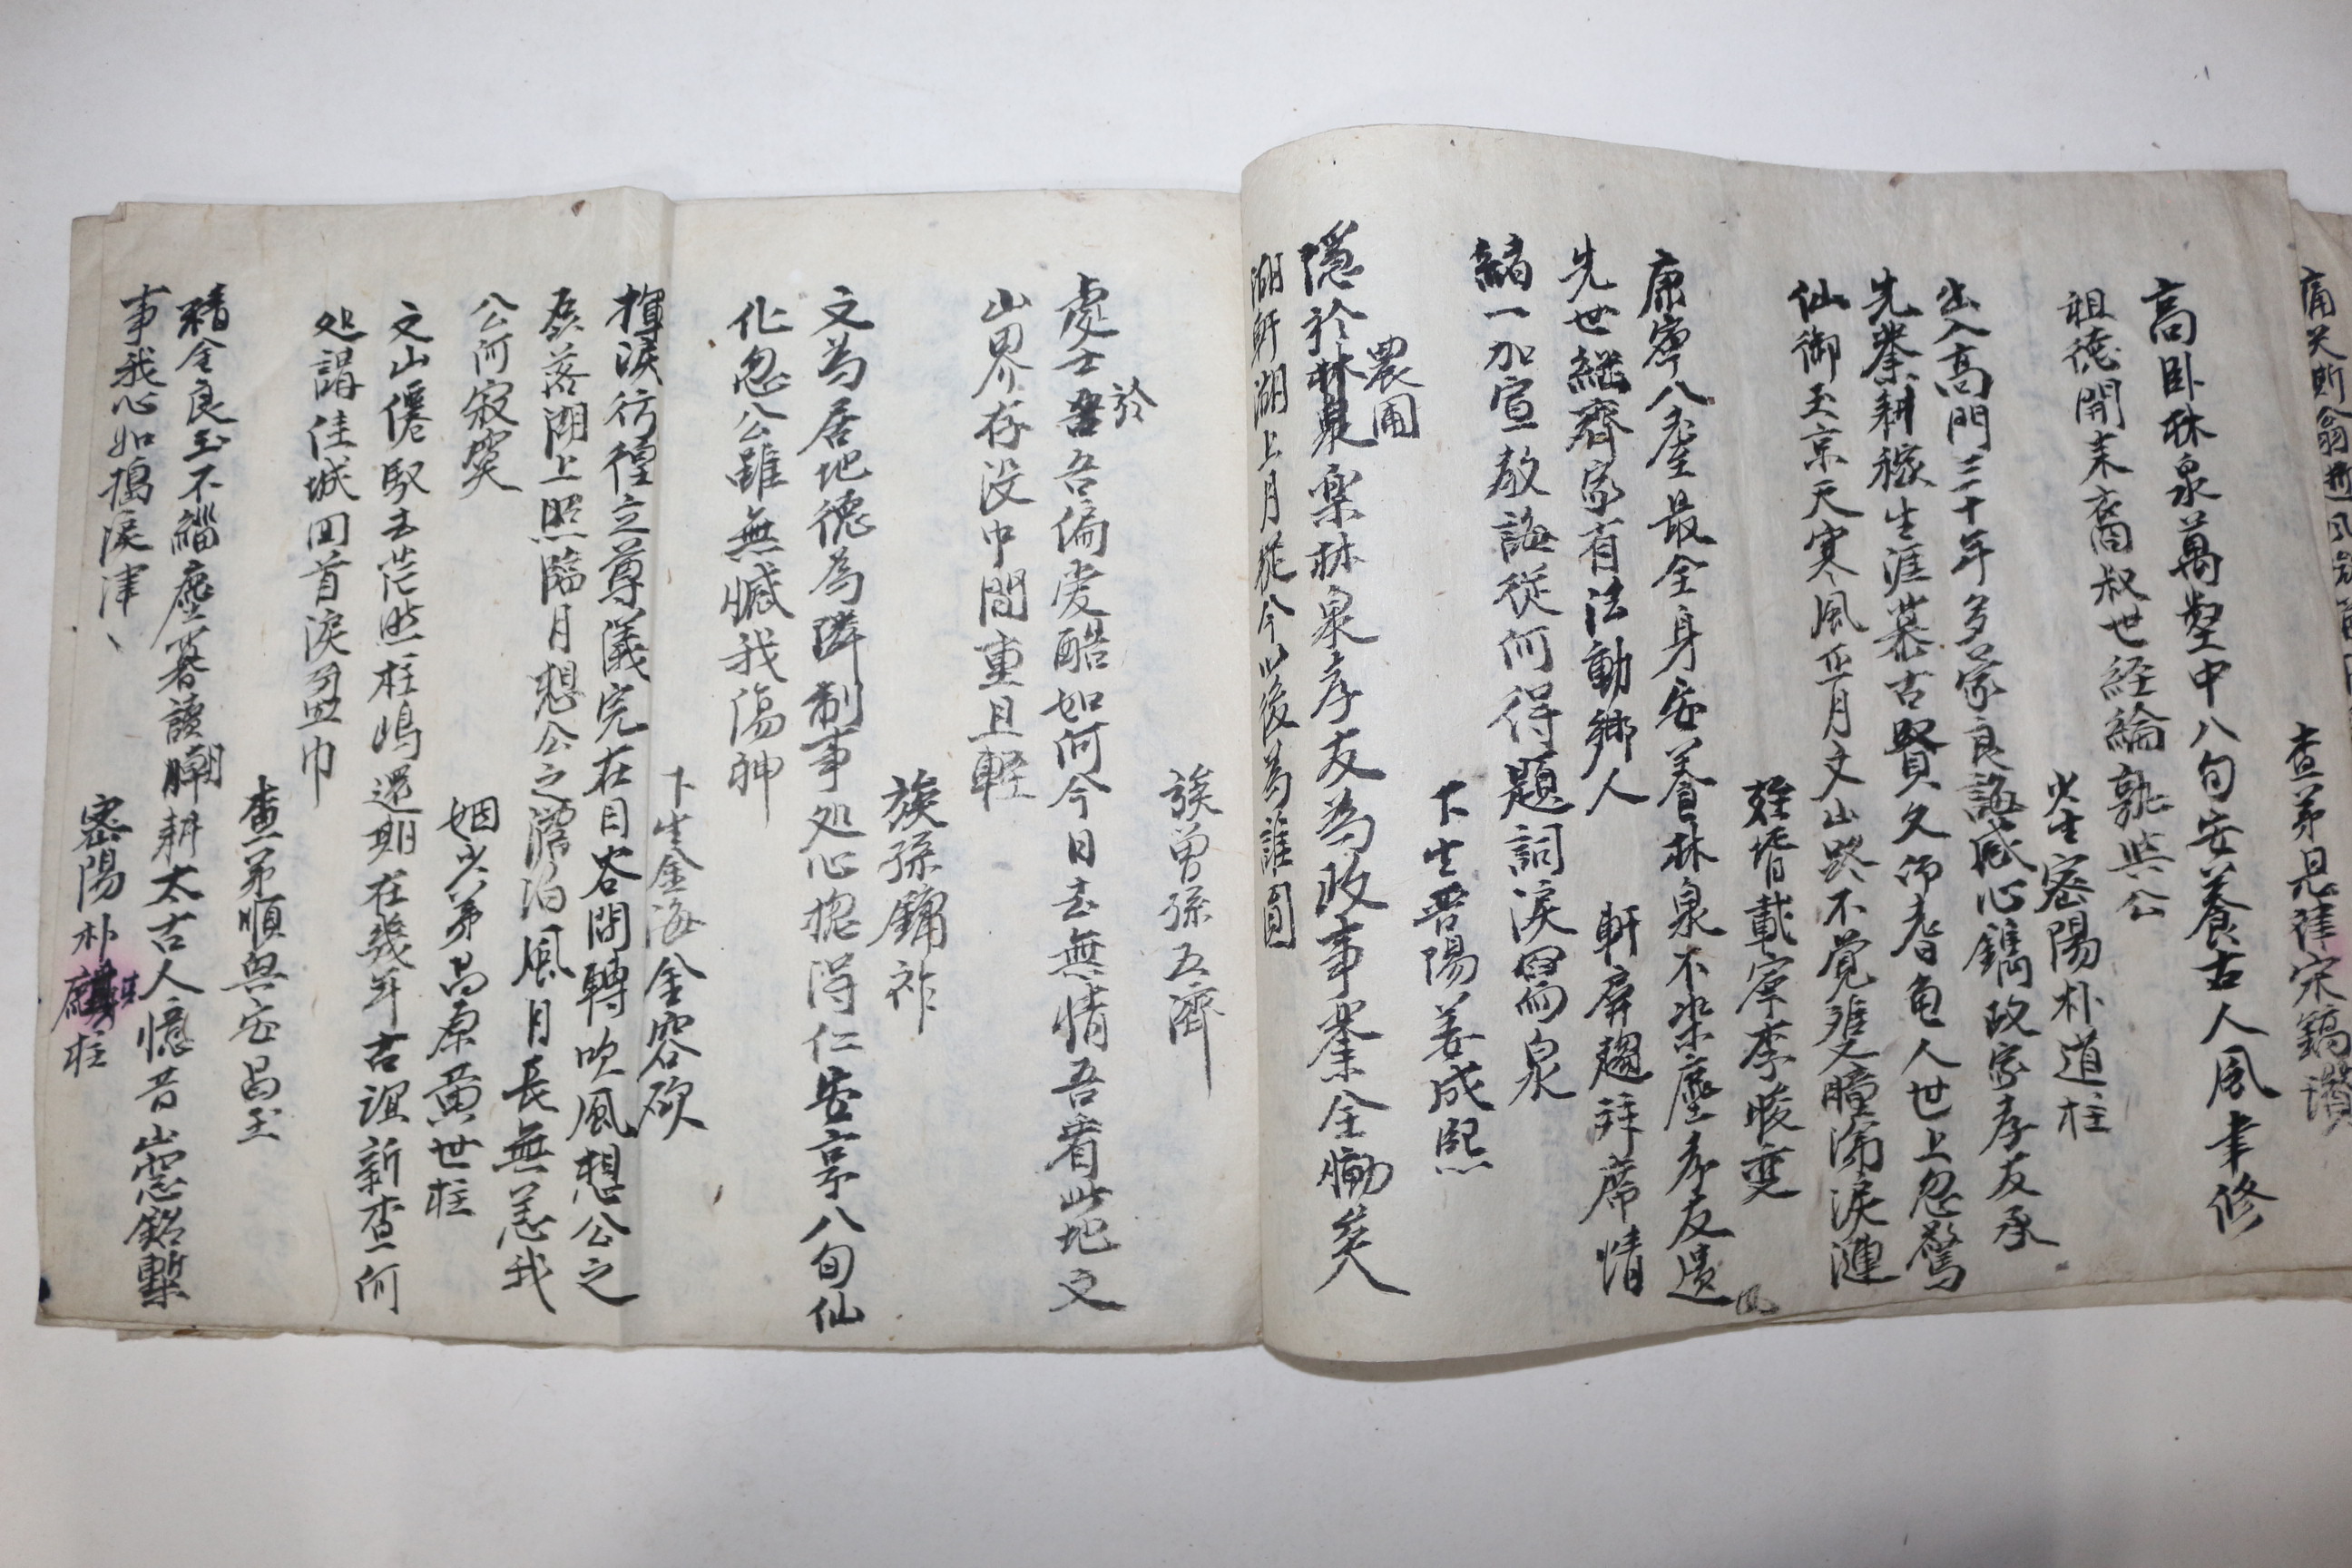 查弟
高臥林泉萬壑中八旬安養古人風聿修
祖德開末裔叔世経綸孰与公
少生密陽朴道柱
出入高門三十年多蒙良誨感心鐫政家孝友承
先業耕稼生涯慕古賢久仰耆龜人世上忽驚
仙御玉京天寒風正月文山路不覚雙瞳涕淚漣
姪壻載寧李晙燮
康寧八耋最全身安養林泉不染塵孝友遺
風
先世継齊家有法動鄉人
軒屏趨拜席情
緒一加宣敎誨從何得題詞淚如泉
下生晋陽姜成熙
農圃
隱於林泉樂林泉孝友為政事業全慟矣
湖軒湖上月從今以後為誰圓
族曽孫五濟
於
處士吾吾偏愛酷如何今日去無情吾看此地文
山界存没中間重且輕
族孫鏞祚
文為居地德為隣制事処心揔得仁安享八旬仙
化忽公雖無憾我傷神
下生金海金容砇
揮淚彷徨立尊儀完在目谷間轉吹風想公之
磊落湖上照臨月想公之澹泊風月長無恙我
公何寂寞
姻少弟昌原黄世柱
文山僊馭去茫然桂嶋還期在幾年古誼新査何
処謂佳城回首淚盈巾
查弟順興安昌玉
精金良玉不緇塵暮讀朝耕太古人憶昔山窓銘槧
事我心如搗淚津丶
密陽朴
柱